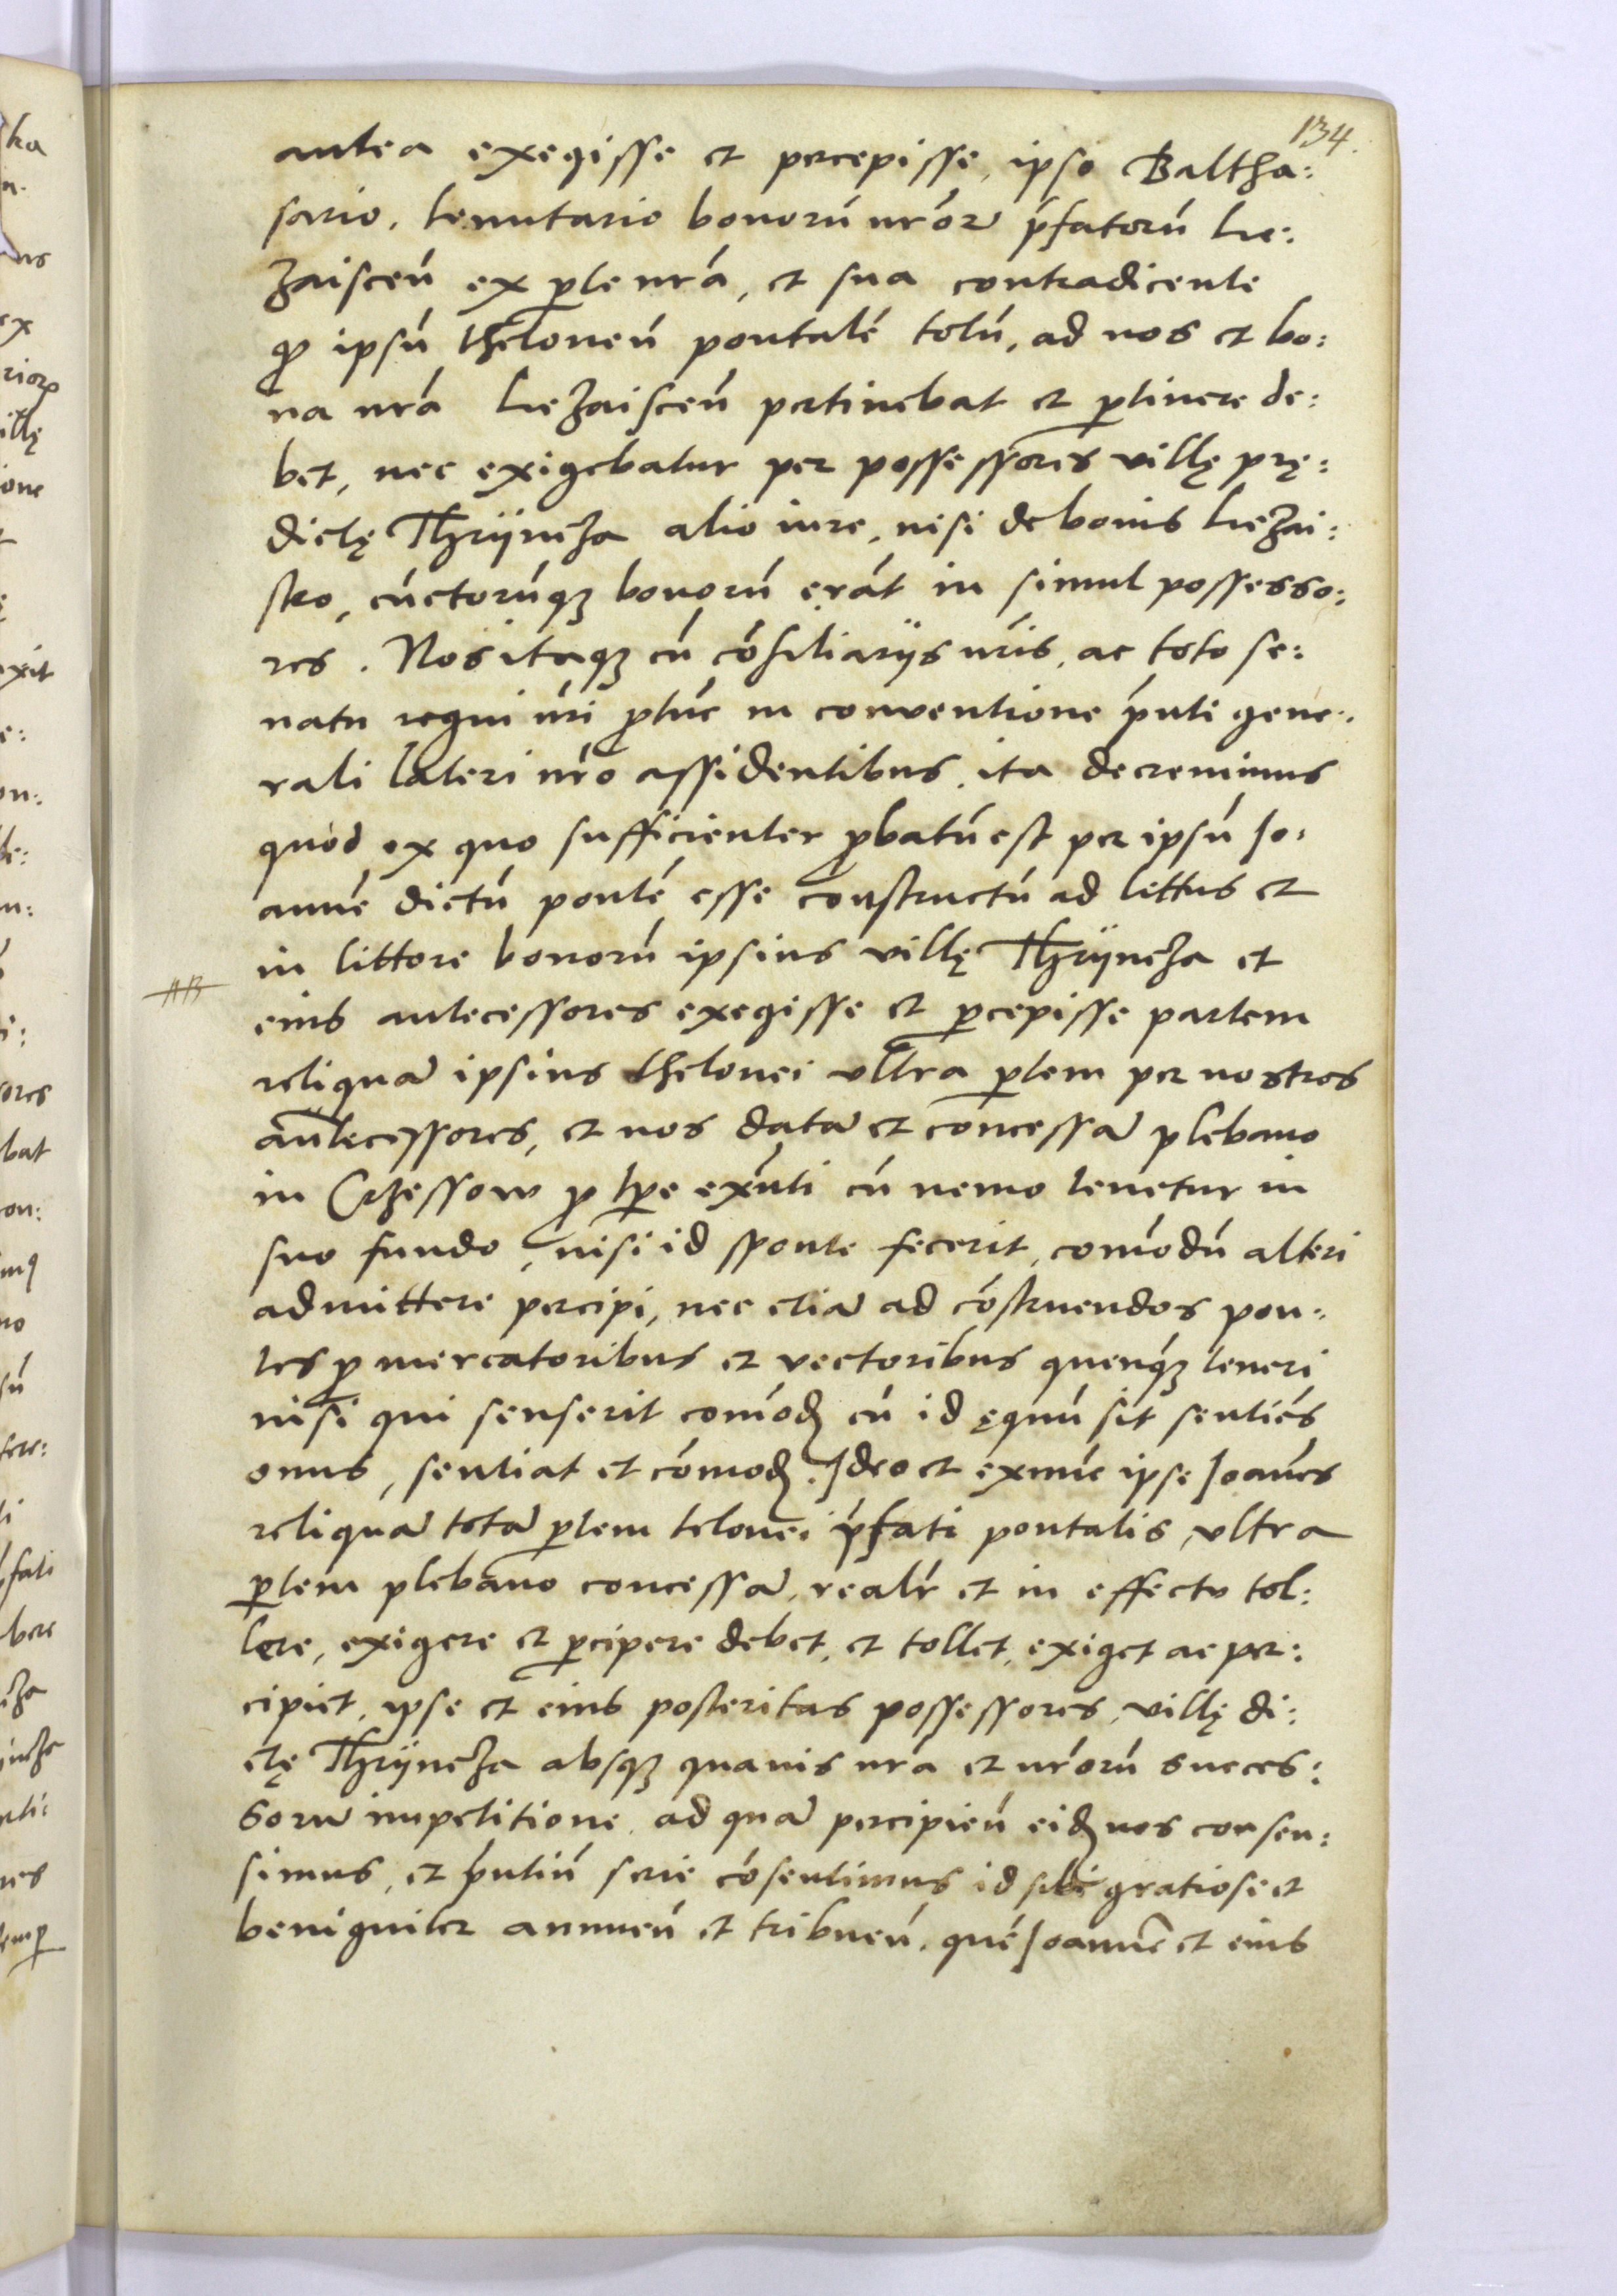 134.
antea exegisse et percepisse, ipso Baltha:
sario, tenutario bonorú nŕor p̄fatorú Lie:
zaisceń ex ꝑte nŕa, et sua contradicente
ꝙ ipsú theloneú pontalé totú, ad nos et bo:
na nŕa Liezaisceń pertinebat et ꝑtinere de:
bet, nec exigebatur per possessores villę prę:
dictę Thrÿncza alio iure, nisi de bonis Liezai:
sko, cúctorúqꝫ bonorú erát in simul possesso:
res. Nos itaqꝫ cú cósiliarijs nŕis, ac toto se:
natu regni nŕi ꝑtúc in conventione p̄nti gene:
rali lateri nŕo assidentibus, ita decrevimus
quod ex quo sufficienter ꝓbatú est per ipsú Jo:
anné dictú ponté esse constructú ad littus et
in littore bonorú ipsius villę Thrÿncza et
eius antecessores exegisse et ꝑcepisse partem
reliquā ipsius thelonei ultra ꝑtem per nostros
antecessores, et nos datā et concessā plebano
in Crzessow ꝓ tꝑe exńti cú nemo tenetur in
suo fundo, nisi id sponte fecerit, comódú alteri
admittere percipi, nec etiā ad cóstruendos pon:
tes ꝓ mercatoribus et vectoribus quenqꝫ teneri
nisi qui senserit comóđ cú id ęquú sit sentiés
onus, sentiat et cómođ. Ideo et exnúc ipse Joańes
reliquā totā ꝑtem telonei p̄fati pontalis, ultra
ꝑtem plebano concessā, realŕ et in effectu tol:
lere, exigere et ꝑcipere debet, et tollet, exiget ac per:
cipiet, ipse et eius posteritas possessores, villę di:
ctę Thrÿncza absqꝫ quavis nŕa et nŕorú succes:
sorū impetitione, ad quā percipień eiđ nos consen:
simus, et p̄ntiú serie cósentimus id sibi gratiose et
benigniter annueń et tribueń, qué Joanné et eius